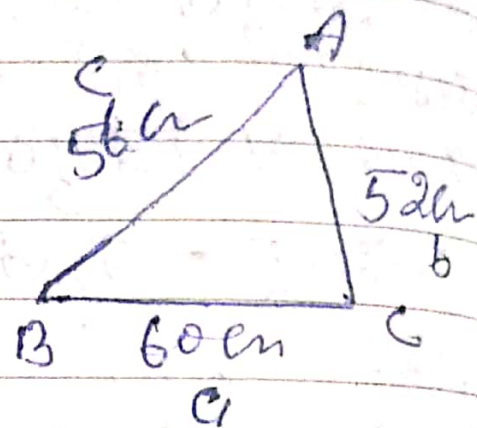 A
c
56 cm
52cm
b
B 60 cm C
a